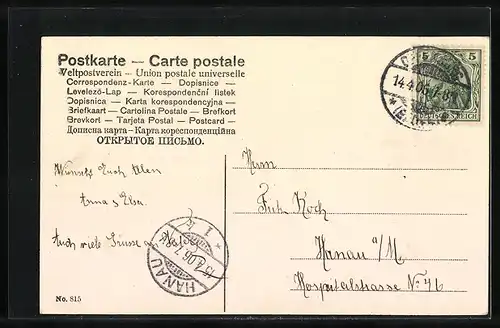 Postkarte — Carte postale
Weltpostverein — Union postale universelle
Correspondenz-Karte — Dopisnice —
Levelező-Lap — Korespondenční listek
Dopisnica — Karta korespondencyjna —
Briefkaart — Cartolina Postale — Brefkort
Brevkort — Tarjeta Postal — Postcard —
Дописна карта — Карта кореспонденційна
ОТКРЫТОЕ ПИСЬМО.
5 5
14.4.06
DEUTSCHES REICH
Wünscht Euch Allen
Anna
Auch viele Grüsse an
HANAU
15.4.06
1
Herrn
Koch
Hanau a/M.
Hospitalstrasse No 46
No. 815